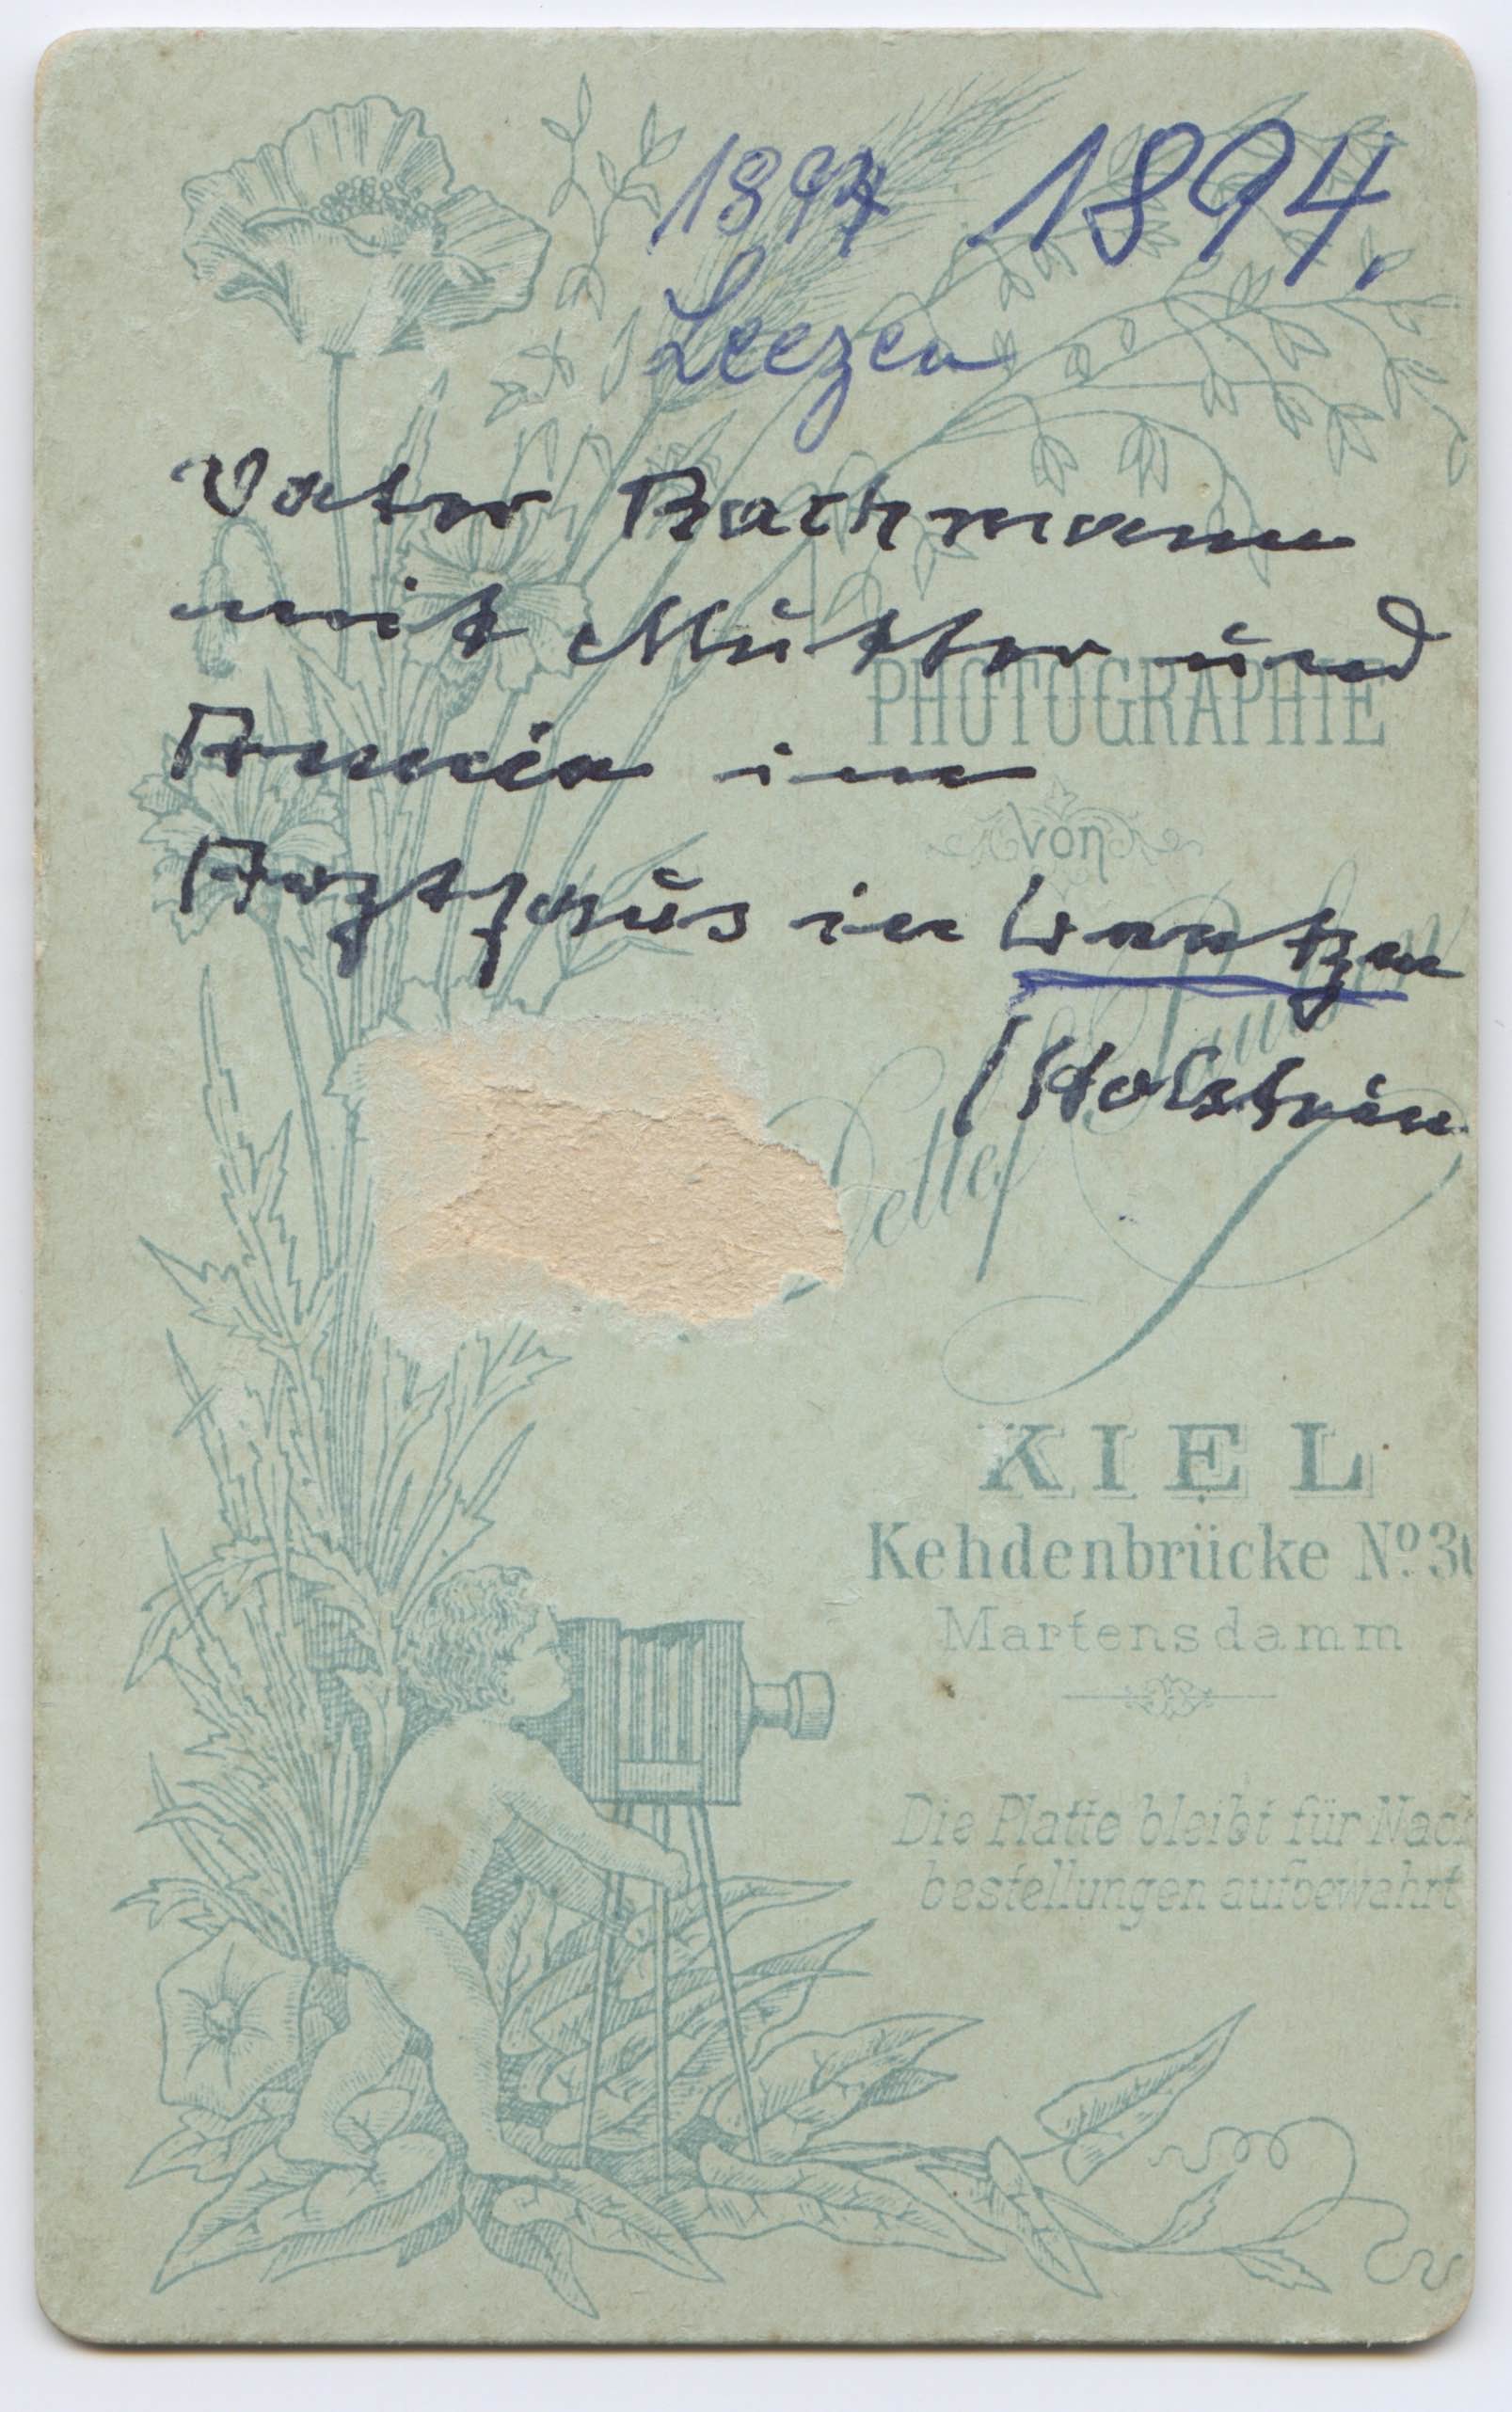 1894 1894.
Leezen
Vater Bachmann
mit Mutter und
Annie im
Arzthaus in
(Holstein
PHOTOGRAPHIE
von
Detlef
KIEL
Kehdenbrücke No. 3
Martensdamm
Die Platte bleibt für Nach
bestellungen aufbewahrt